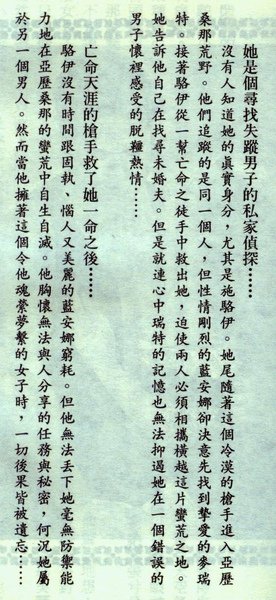 她是個尋找失蹤男子的私家偵探……
沒有人知道她的眞實身分，尤其是施駱伊。她尾隨著這個冷漠的槍手進入亞歷
桑那荒野。他們追蹤的是同一個人，但性情剛烈的藍安娜卻決意先找到摯愛的麥瑞
特。接著駱伊從一幫亡命之徒手中救出她，迫使兩人必須相攜橫越這片蠻荒之地。
她告訴他自己在找尋未婚夫。但是就連心中瑞特的記憶也無法抑遏她在一個錯誤的
男子懷裡感受的脫韁熱情……
亡命天涯的槍手救了她一命之後……
駱伊沒有時間跟固執、惱人又美麗的藍安娜窮耗。但他無法丟下她毫無防禦能
力地在亞歷桑那的蠻荒中自生自滅。他胸懷無法與人分享的任務與秘密，何況她屬
於另一個男人。然而當他擁著這個令他魂縈夢繫的女子時，一切後果皆被遺忘……